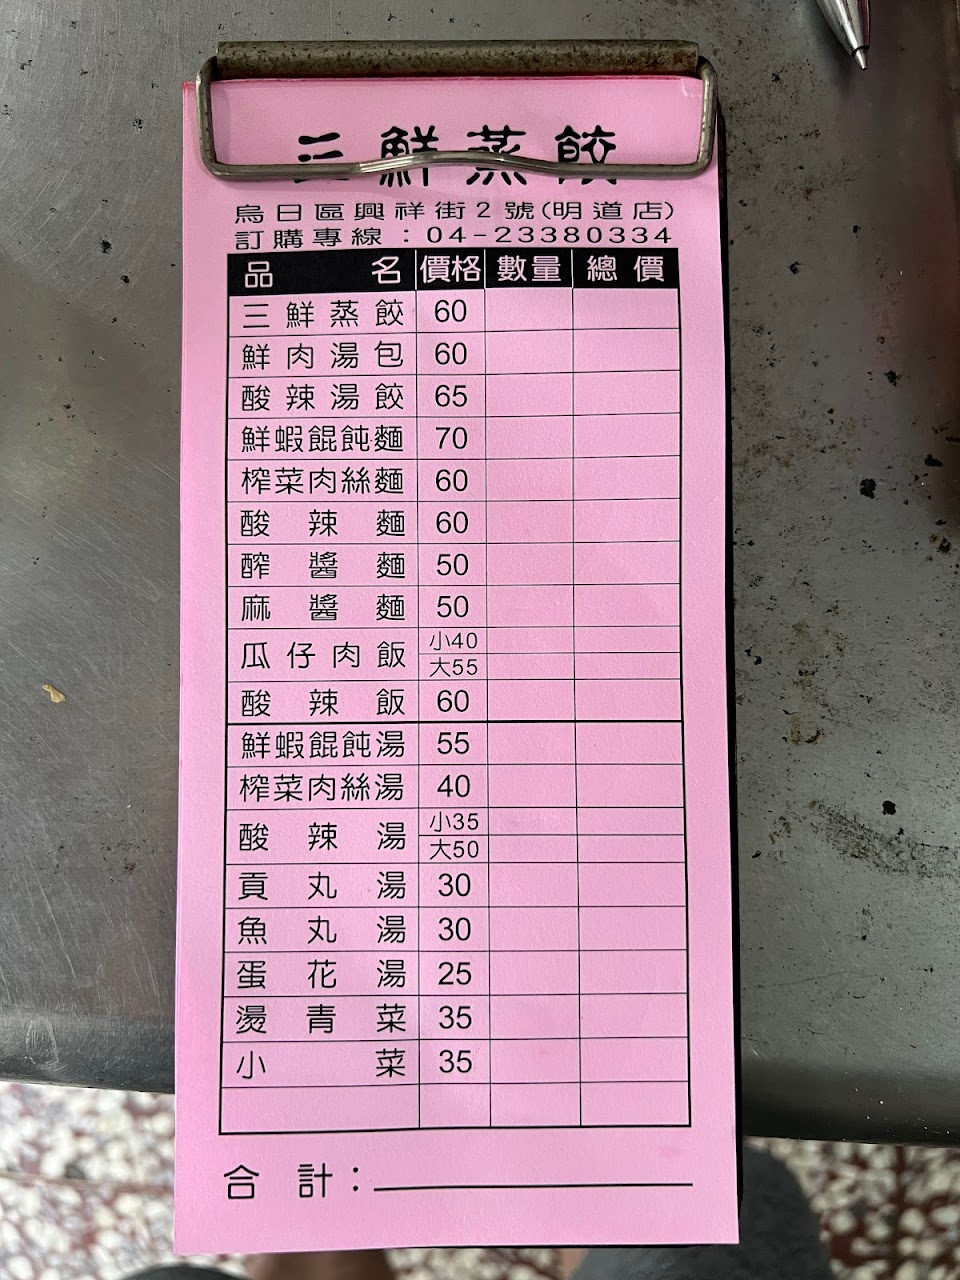 三鮮蒸餃
烏日區興祥街2號(明道店)
訂購專線：04-23380334
品名 價格 數量 總價
三鮮蒸餃 60
鮮肉湯包 60
酸辣湯餃 65
鮮蝦餛飩麵 70
榨菜肉絲麵 60
酸辣麵 60
醡醬麵 50
麻醬麵 50
瓜仔肉飯 小40
大55
酸辣飯 60
鮮蝦餛飩湯 55
榨菜肉絲湯 40
酸辣湯 小35
大50
貢丸湯 30
魚丸湯 30
蛋花湯 25
燙青菜 35
小菜 35
合計：